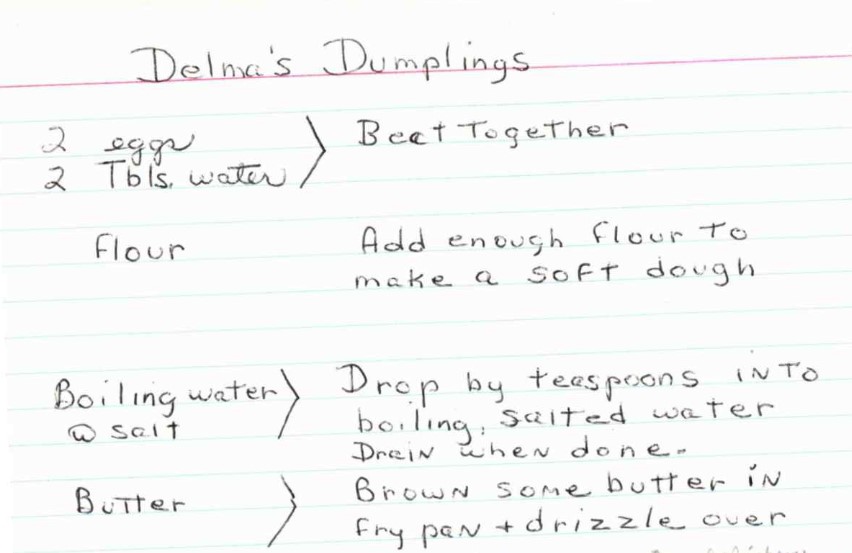 Delma's Dumplings
2 eggs
2 Tbls. water
Beat Together
flour
Add enough flour to
make a soft dough
Boiling water
@ salt
Drop by teaspoons into
boiling, salted water
Drain when done.
Butter
Brown some butter in
fry pan + drizzle over